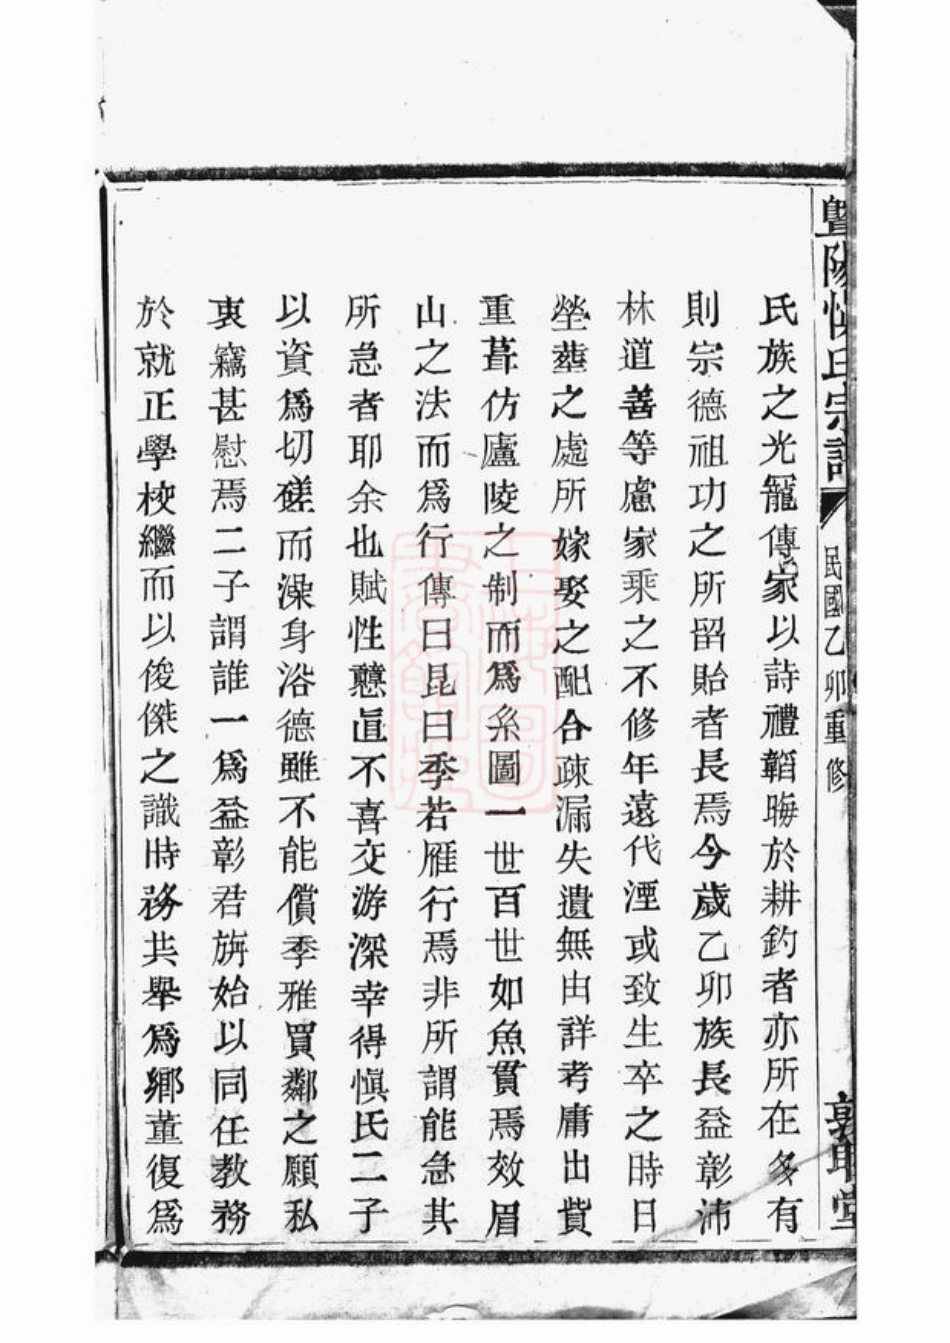 暨陽慎氏宗譜
民國乙卯重修
敦睦堂
氏族之光寵傳家以詩禮韜晦於耕釣者亦所在多有
則宗德祖功之所留貽者長焉今歲乙卯族長益彰沛
林道善等慮家乘之不修年遠代湮或致生卒之時日
塋葬之處所嫁娶之配合疎漏失遺無由詳考庸出貲
重葺仿廬陵之制而爲糸圖一世百世如魚貫焉效眉
山之法而爲行傳曰昆曰季若雁行焉非所謂能急其
所急者耶余也賦性戇直不喜交游深幸得愼氏二子
以資爲切磋而澡身浴德雖不能償季雅買鄰之願私
衷竊甚慰焉二子謂誰一爲益彰君旃始以同任教務
於就正學校繼而以俊傑之識時務共舉爲鄉董復爲